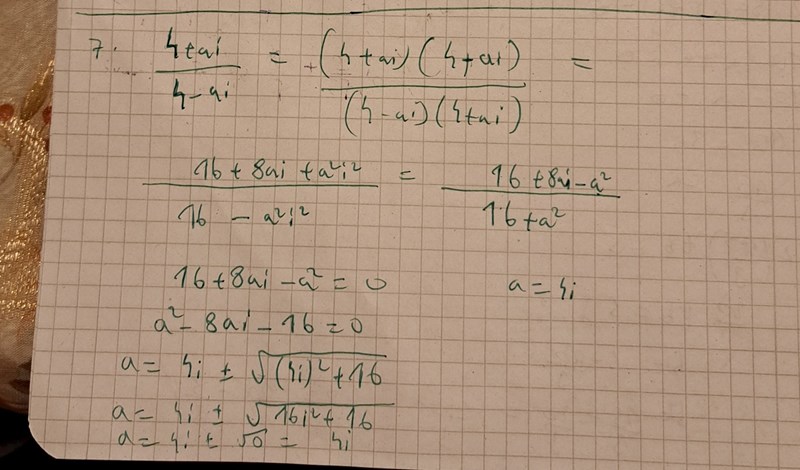 7. 4+ai / 4-ai = (4+ai)(4+ai) / (4-ai)(4+ai) =
16 + 8ai + a²i² / 16 - a²i² = 16 + 8ai - a² / 16 + a²
16 + 8ai - a² = 0 a = 4i
a² - 8ai - 16 = 0
a = 4i ± √(4i)² + 16
a = 4i ± √16i² + 16
a = 4i ± √0 = 4i